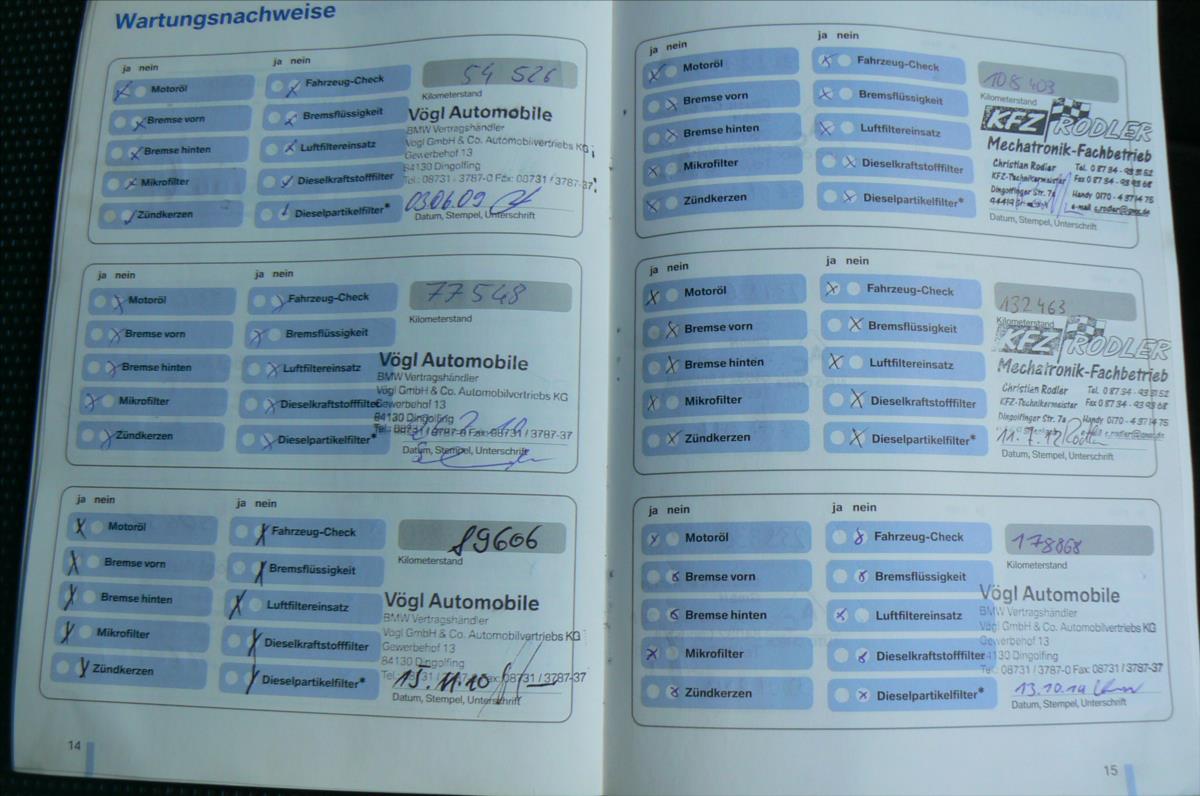 Wartungsnachweise
ja nein
ja nein
Motoröl
Bremse vorn
Bremse hinten
Mikrofilter
Zündkerzen
Fahrzeug-Check
Bremsflüssigkeit
Luftfiltereinsatz
Dieselkraftstofffilter
Dieselpartikelfilter*
54 526
Kilometerstand
Vögl Automobile
BMW Vertragshändler
Vögl GmbH & Co. Automobilvertriebs KG
Gewerbehof 13
84130 Dingolfing
Tel.: 08731 - 3787-0 Fax: 08731 / 3787-37
03.06.09
Datum, Stempel, Unterschrift
ja nein
ja nein
Motoröl
Bremse vorn
Bremse hinten
Mikrofilter
Zündkerzen
Fahrzeug-Check
Bremsflüssigkeit
Luftfiltereinsatz
Dieselkraftstofffilter
Dieselpartikelfilter*
77 548
Kilometerstand
Vögl Automobile
BMW Vertragshändler
Vögl GmbH & Co. Automobilvertriebs KG
Gewerbehof 13
84130 Dingolfing
Tel.: 08731 / 3787-0 Fax: 08731 / 3787-37
Datum, Stempel, Unterschrift
ja nein
ja nein
Motoröl
Bremse vorn
Bremse hinten
Mikrofilter
Zündkerzen
Fahrzeug-Check
Bremsflüssigkeit
Luftfiltereinsatz
Dieselkraftstofffilter
Dieselpartikelfilter*
89606
Kilometerstand
Vögl Automobile
BMW Vertragshändler
Vögl GmbH & Co. Automobilvertriebs KG
Gewerbehof 13
84130 Dingolfing
Tel.: 08731 / 3787-0 Fax: 08731 / 3787-37
15.11.10
Datum, Stempel, Unterschrift
14
ja nein
ja nein
Motoröl
Bremse vorn
Bremse hinten
Mikrofilter
Zündkerzen
Fahrzeug-Check
Bremsflüssigkeit
Luftfiltereinsatz
Dieselkraftstofffilter
Dieselpartikelfilter*
108 403
Kilometerstand
KFZ RODLER
Mechatronik-Fachbetrieb
Christian Rodler Tel. 0 87 34 - 93 91 52
KFZ-Technikermeister Fax 0 87 34 - 93 93 68
Dingolfinger Str. 7a Handy 0170 - 4 37 14 75
e-mail c.rodler@gmx.de
Datum, Stempel, Unterschrift
ja nein
ja nein
Motoröl
Bremse vorn
Bremse hinten
Mikrofilter
Zündkerzen
Fahrzeug-Check
Bremsflüssigkeit
Luftfiltereinsatz
Dieselkraftstofffilter
Dieselpartikelfilter*
132 463
Kilometerstand
KFZ RODLER
Mechatronik-Fachbetrieb
Christian Rodler Tel. 0 87 34 - 93 91 52
KFZ-Technikermeister Fax 0 87 34 - 93 93 68
Dingolfinger Str. 7a Handy 0170 - 4 37 14 75
c.rodler@gmx.de
11.7.12 Rodler
Datum, Stempel, Unterschrift
ja nein
ja nein
Motoröl
Bremse vorn
Bremse hinten
Mikrofilter
Zündkerzen
Fahrzeug-Check
Bremsflüssigkeit
Luftfiltereinsatz
Dieselkraftstofffilter
Dieselpartikelfilter*
178868
Kilometerstand
Vögl Automobile
BMW Vertragshändler
Vögl GmbH & Co. Automobilvertriebs KG
Gewerbehof 13
84130 Dingolfing
Tel.: 08731 / 3787-0 Fax: 08731 / 3787-37
13.10.14
Datum, Stempel, Unterschrift
15